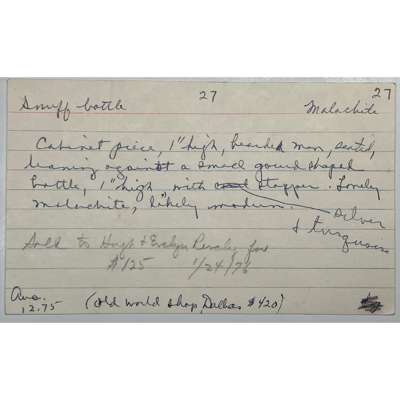 27 27
Snuff bottle Malachite
Cabinet piece, 1" high, bearded man, seated,
leaning against a small gourd shaped
bottle, 1" high with stopper. Lovely
malachite, likely modern. silver
& turquoise
Sold to Hugh & Evelyn for
$125 1/24/76
12.75 (Old World Shop, Dallas $420)